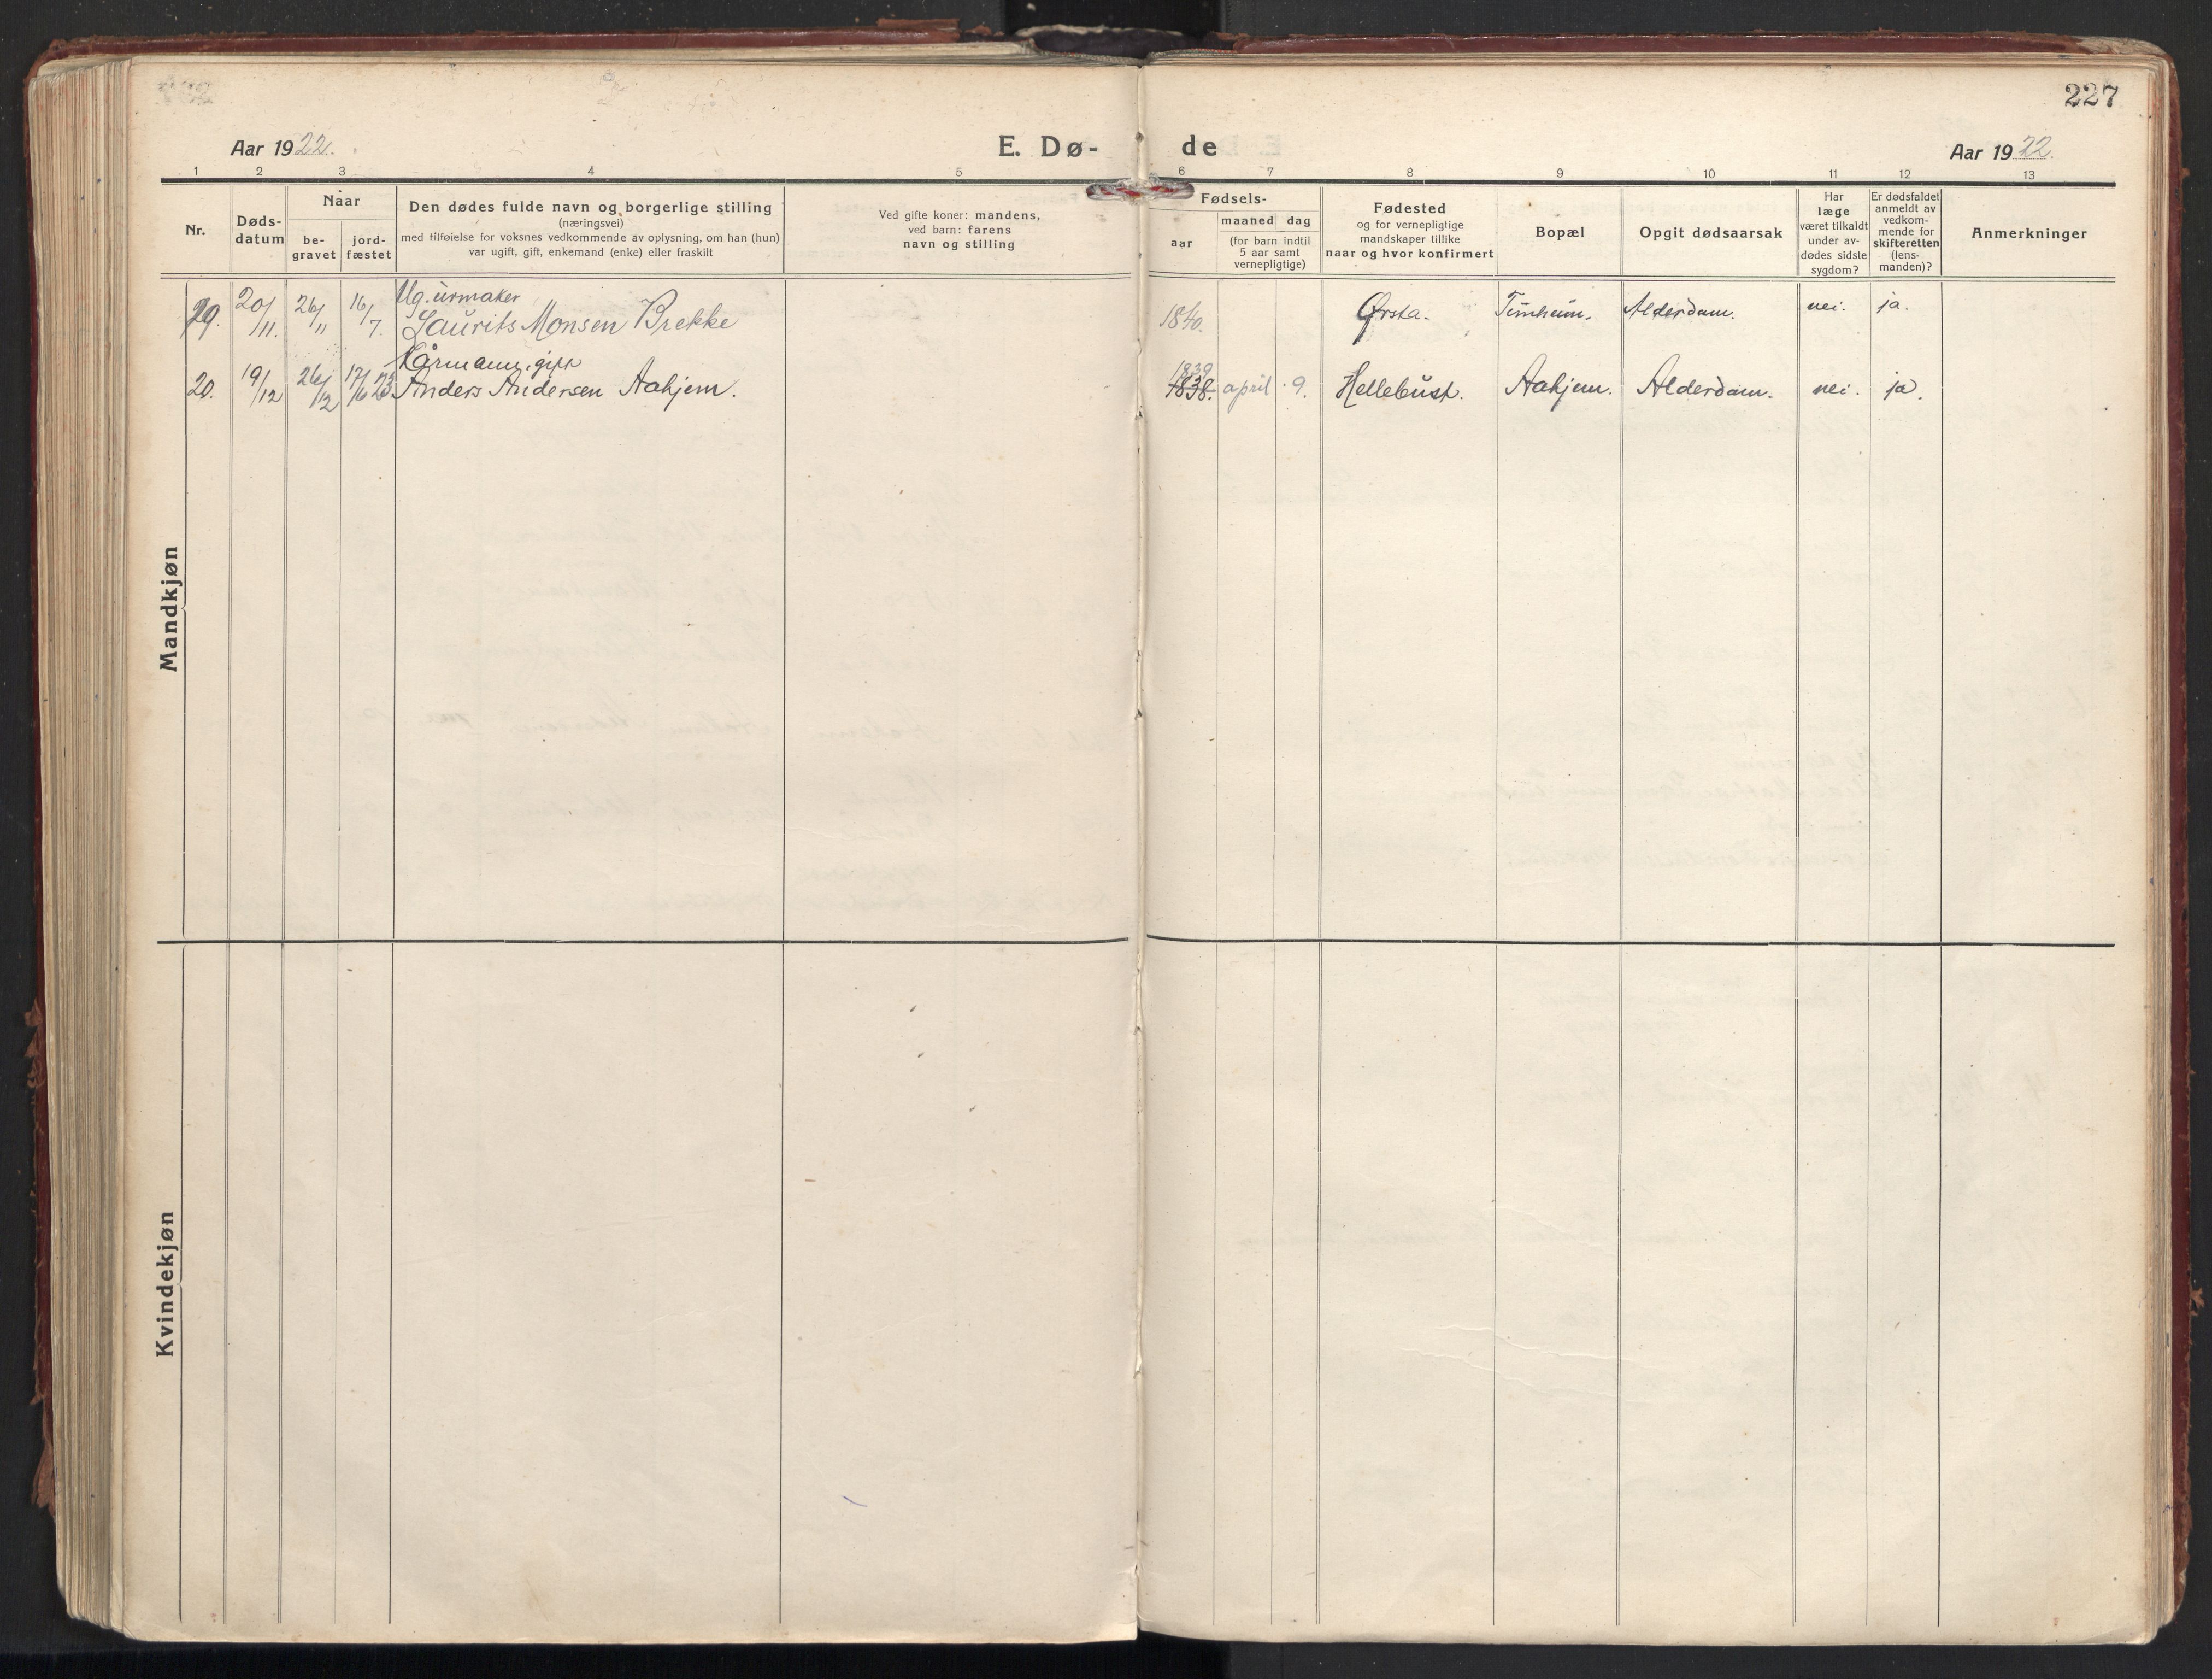 227
Aar 1922.
E. Dø-
de
Aar 1922.
1 2 3 4 5 6 7 8 9 10 11 12 13
Nr.
Døds-
datum
Naar
be-
gravet
jord-
fæstet
Den dødes fulde navn og borgerlige stilling
(næringsvei)
med tilføielse for voksnes vedkommende av oplysning, om han (hun)
var ugift, gift, enkemand (enke) eller fraskilt
Ved gifte koner: mandens,
ved barn: farens
navn og stilling
Fødsels-
aar
maaned dag
(for barn indtil
5 aar samt
vernepligtige)
Fødested
og for vernepligtige
mandskaper tillike
naar og hvor konfirmert
Bopæl
Opgit dødsaarsak
Har
læge
været tilkaldt
under av-
dødes sidste
sygdom?
Er dødsfaldet
anmeldt av
vedkom-
mende for
skifteretten
(lens-
manden)?
Anmerkninger
Mandkjøn
Ug. urmaker
19. 20/11. 26/11 16/7. Laurits Monsen Brekke 1840. Ørsta. Alderdom. nei. ja.
Kårmann, gift
1839
20. 19/12 26/12 17/6 23 Anders Andersen Aahjem. 1838. april 9. Hellebust. Aahjem. Alderdom. nei. ja.
Kvindekjøn